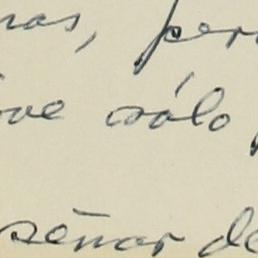 nas, per
ve sólo
señar de